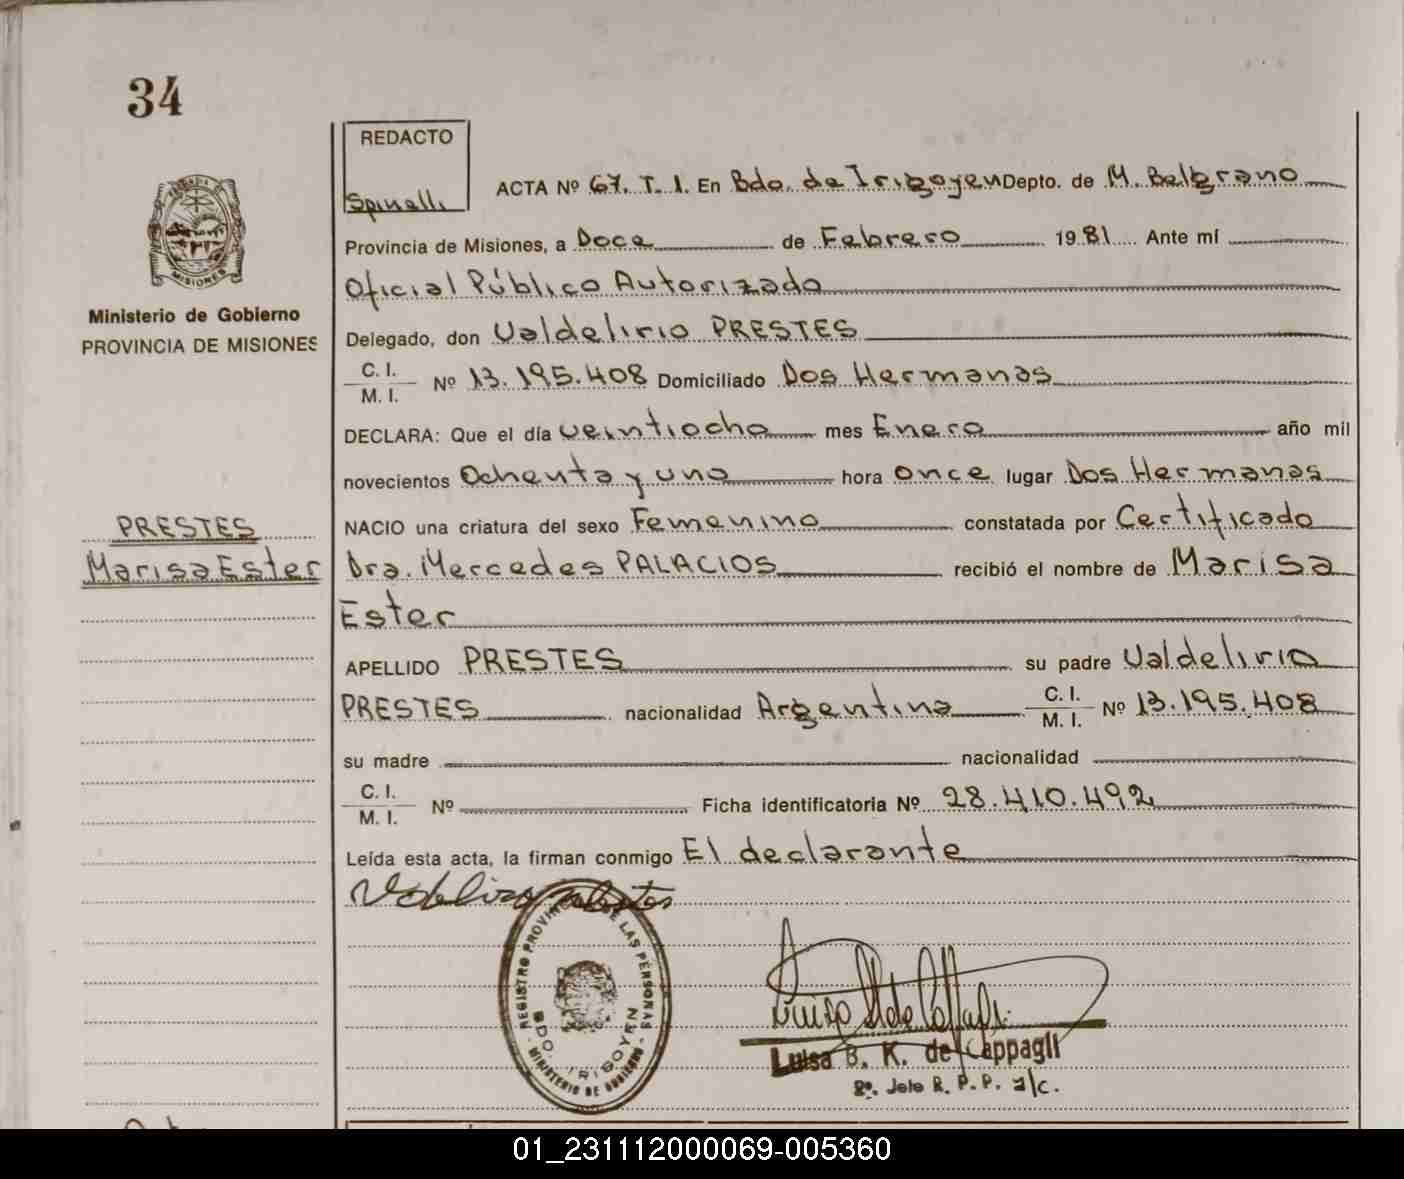 34
REDACTO
Spinelli
ACTA Nº 67. T. 1. En Bdo. de Irigoyen Depto. de M. Belgrano
Provincia de Misiones, a Doce de Febrero 1981 Ante mí
Oficial Público Autorizado
Delegado, don Valdelirio PRESTES
C. I.
M. I. Nº 13.195.408 Domiciliado Dos Hermanas
DECLARA: Que el día veintiocho mes Enero año mil
novecientos Ochenta y uno hora once lugar Dos Hermanas
NACIO una criatura del sexo Femenino constatada por Certificado
Dra. Mercedes PALACIOS recibió el nombre de Marisa
Ester
APELLIDO PRESTES su padre Valdelirio
PRESTES nacionalidad Argentina C. I. M. I. Nº 13.195.408
su madre nacionalidad
C. I.
M. I. Nº Ficha identificatoria Nº 28.410.492
Leída esta acta, la firman conmigo El declarante
MISIONES
Ministerio de Gobierno
PROVINCIA DE MISIONES
PRESTES
Marisa Ester
REGISTRO PROVINCIAL DE LAS PERSONAS
BDO. IRIGOYEN
MINISTERIO DE GOBIERNO
Luisa B. K. de Cappagli
2º. Jefe R. P. P. a/c.
01_231112000069-005360